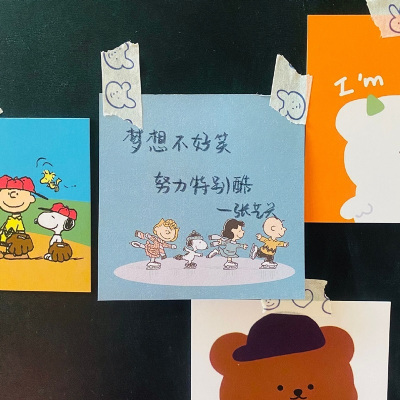 梦想不好笑
努力特别酷
I'm